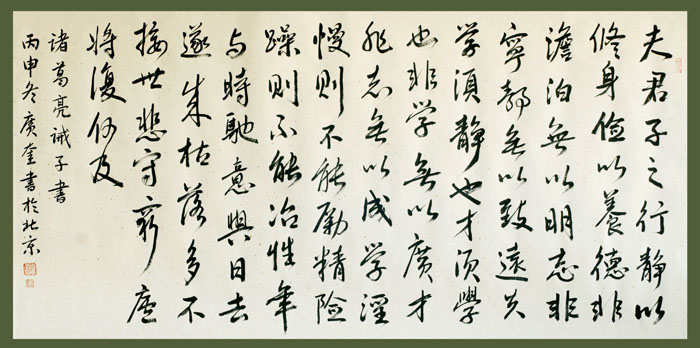 夫君子之行静以
修身俭以養德非
澹泊無以明志非
寧静無以致遠夫
学須静也才須學
也非学無以廣才
非志無以成学淫
慢则不能励精险
躁则不能冶性年
与時馳意與日去
遂成枯落多不
接世悲守穷庐
将復何及
诸葛亮诫子書
丙申冬廣奎書於北京